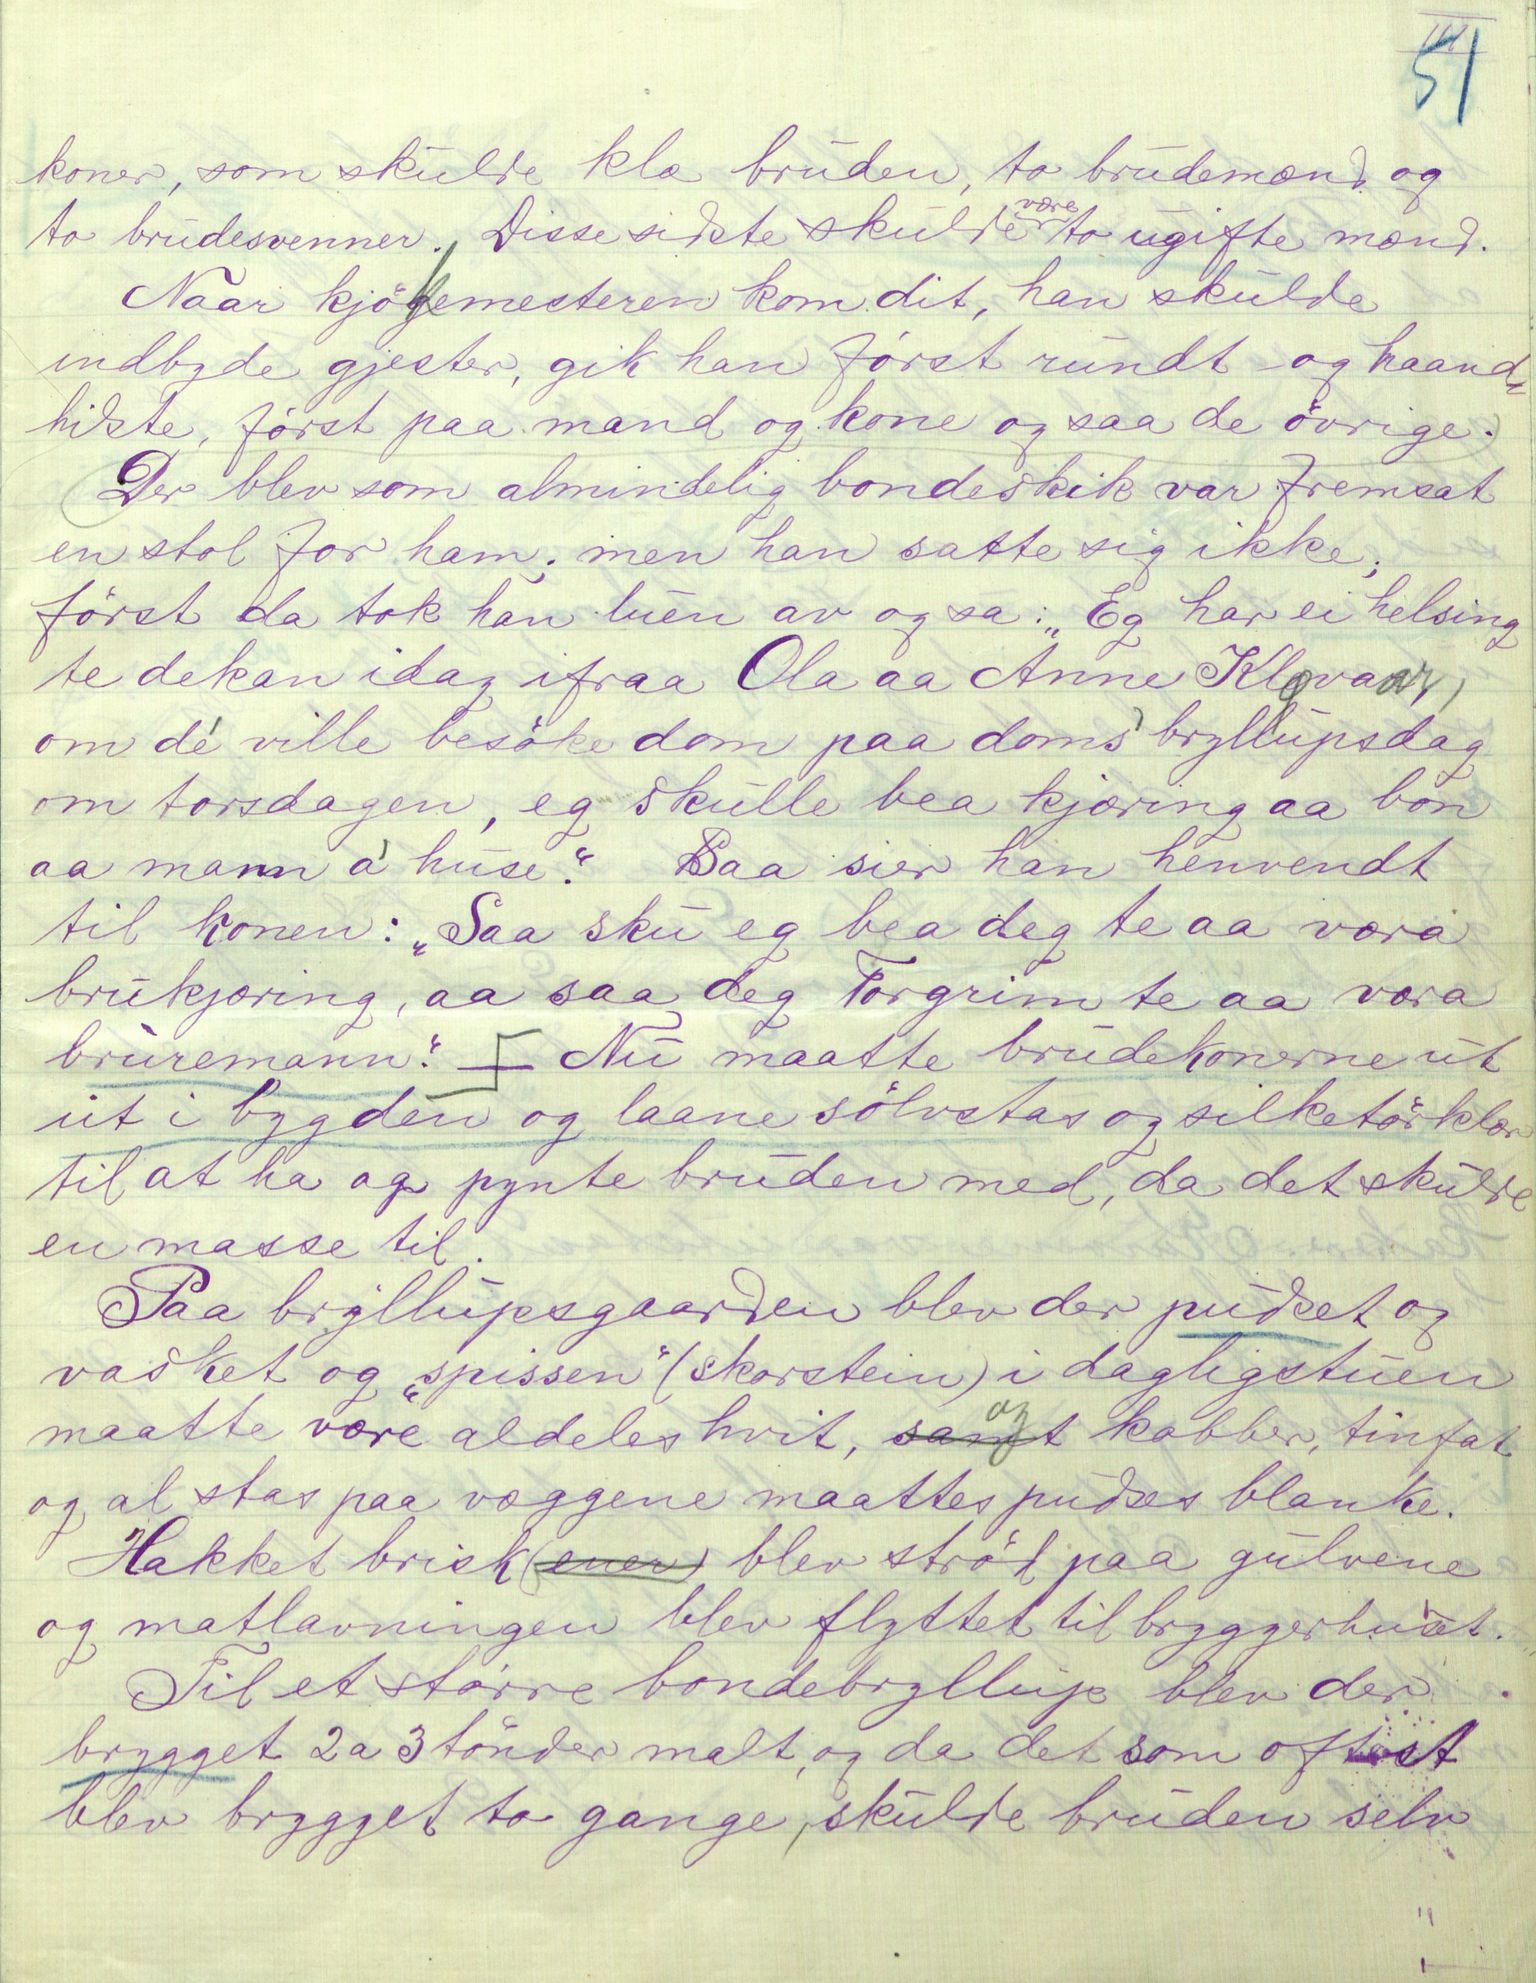 51
koner, som skulde klæ bruden, to brudemænd og
to brudesvenner. Disse sidste skulde være to ugifte mænd.
Naar kjökemesteren kom dit, han skulde
indbyde gjester, gik han först rundt og haand-
hilste, först paa mand og kone og saa de övrige.
Der blev som almindelig bondeskik var fremsat
en stol for ham; men han satte sig ikke,
först da tok han luen av og sa: „Eg har ei helsing
te dekan idag ifraa Ola aa Anne Klovaar,
om dé ville besöke dom paa doms bryllupsdag
om torsdagen, eg skulle bea kjæring aa bon
aa mann a' huse.“ Saa sier han henvendt
til konen: „Saa sku eg bea deg te aa væra
brukjæring, aa saa deg Torgrim te aa væra
bruremann“. Nu maatte brudekonerne ut
ut i bygden og laane sölvstas og silketörklær
til at ha og pynte bruden med, da det skulde
en masse til.
Paa bryllupsgaarden blev der pudset og
vasket og „spissen“ (skorstein) i dagligstuen
maatte være aldeles hvit, samt og kobber, tinfat
og al stas paa væggene maattes pudses blanke.
Hakket brisk (ener) blev ströd paa gulvene
og matlavningen blev flyttet til bryggerhuset.
Til et större bondebryllup blev der
brygget 2 a 3 tönder malt, og da det som oftest
blev brygget to gange, skulde bruden selv